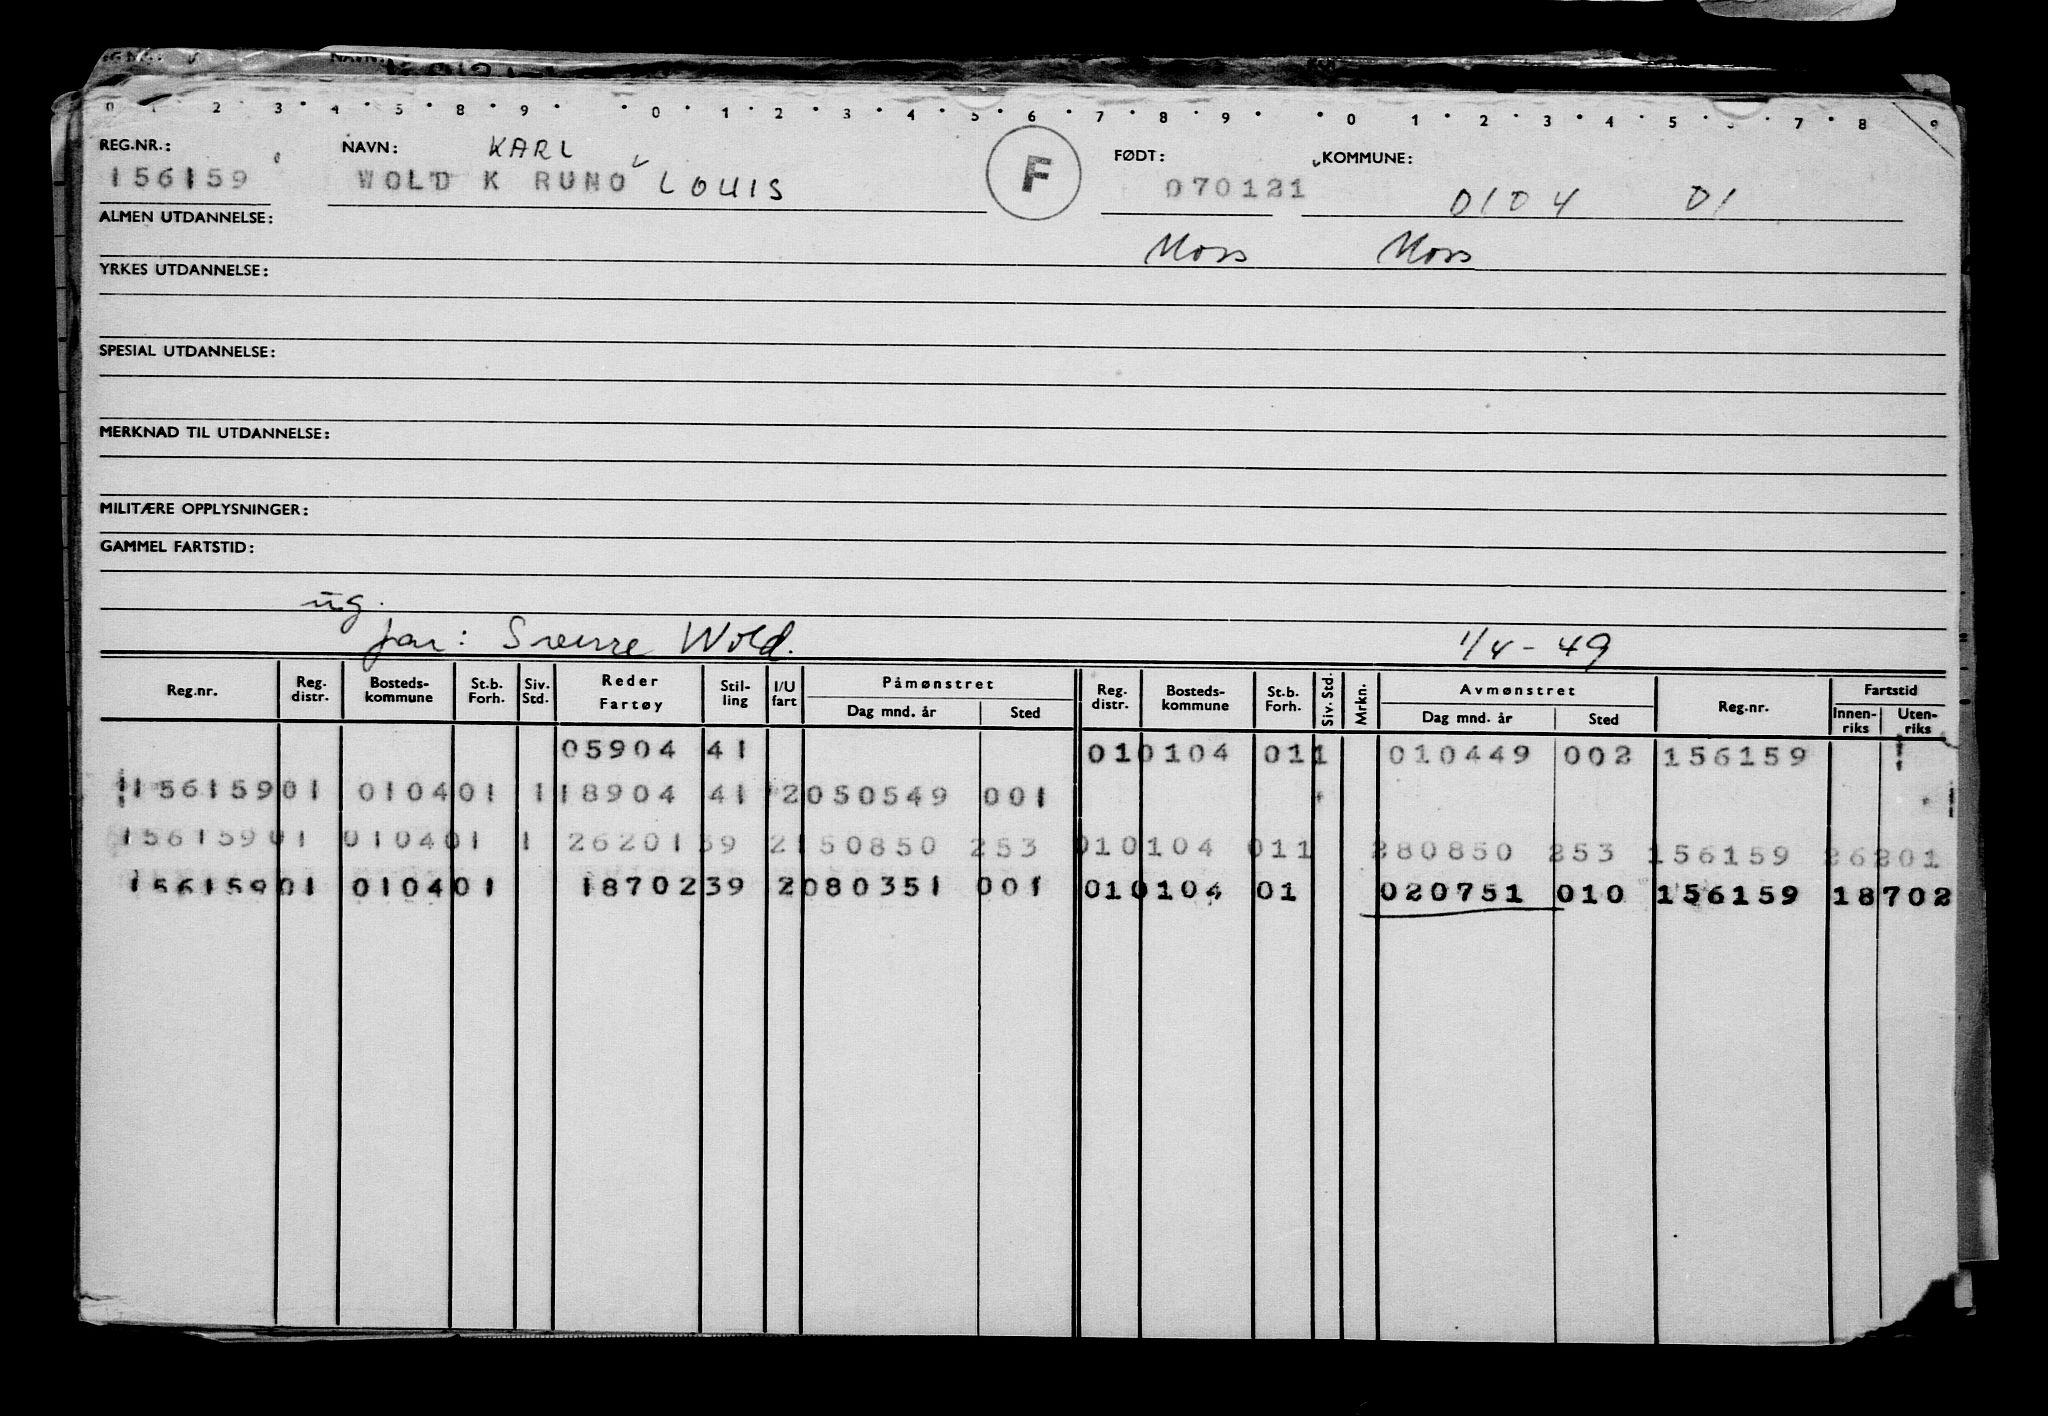 0 1 2 3 4 5 8 9 0 1 2 3 4 5 6 7 8 9 0 1 2 3 4 5 7 8 9
REG.NR.: NAVN: KARL FØDT: KOMMUNE:
156159 WOLD K RUNO LOUIS F 070121 0104 01
ALMEN UTDANNELSE:
Moss Moss
YRKES UTDANNELSE:
SPESIAL UTDANNELSE:
MERKNAD TIL UTDANNELSE:
MILITÆRE OPPLYSNINGER:
GAMMEL FARTSTID:
ug.
far: Sverre Wold. 1/4-49
Reg.nr. Reg. distr. Bosteds-kommune St.b. Forh. Siv. Std. Reder Fartøy Stil-ling I/U fart Påmønstret Dag mnd. år Sted Reg. distr. Bosteds-kommune St.b. Forh. Siv. Std. Mrkn. Avmønstret Dag mnd. år Sted Reg.nr. Fartstid Innen-riks Uten-riks
05904 41 010104 011 010449 002 156159
15615901 010401 1 18904 41 2 050549 001
15615901 010401 1 26201 39 2 150850 253 010104 011 280850 253 156159 26201
15615901 010401 18702 39 2 080351 001 010104 01 020751 010 156159 18702